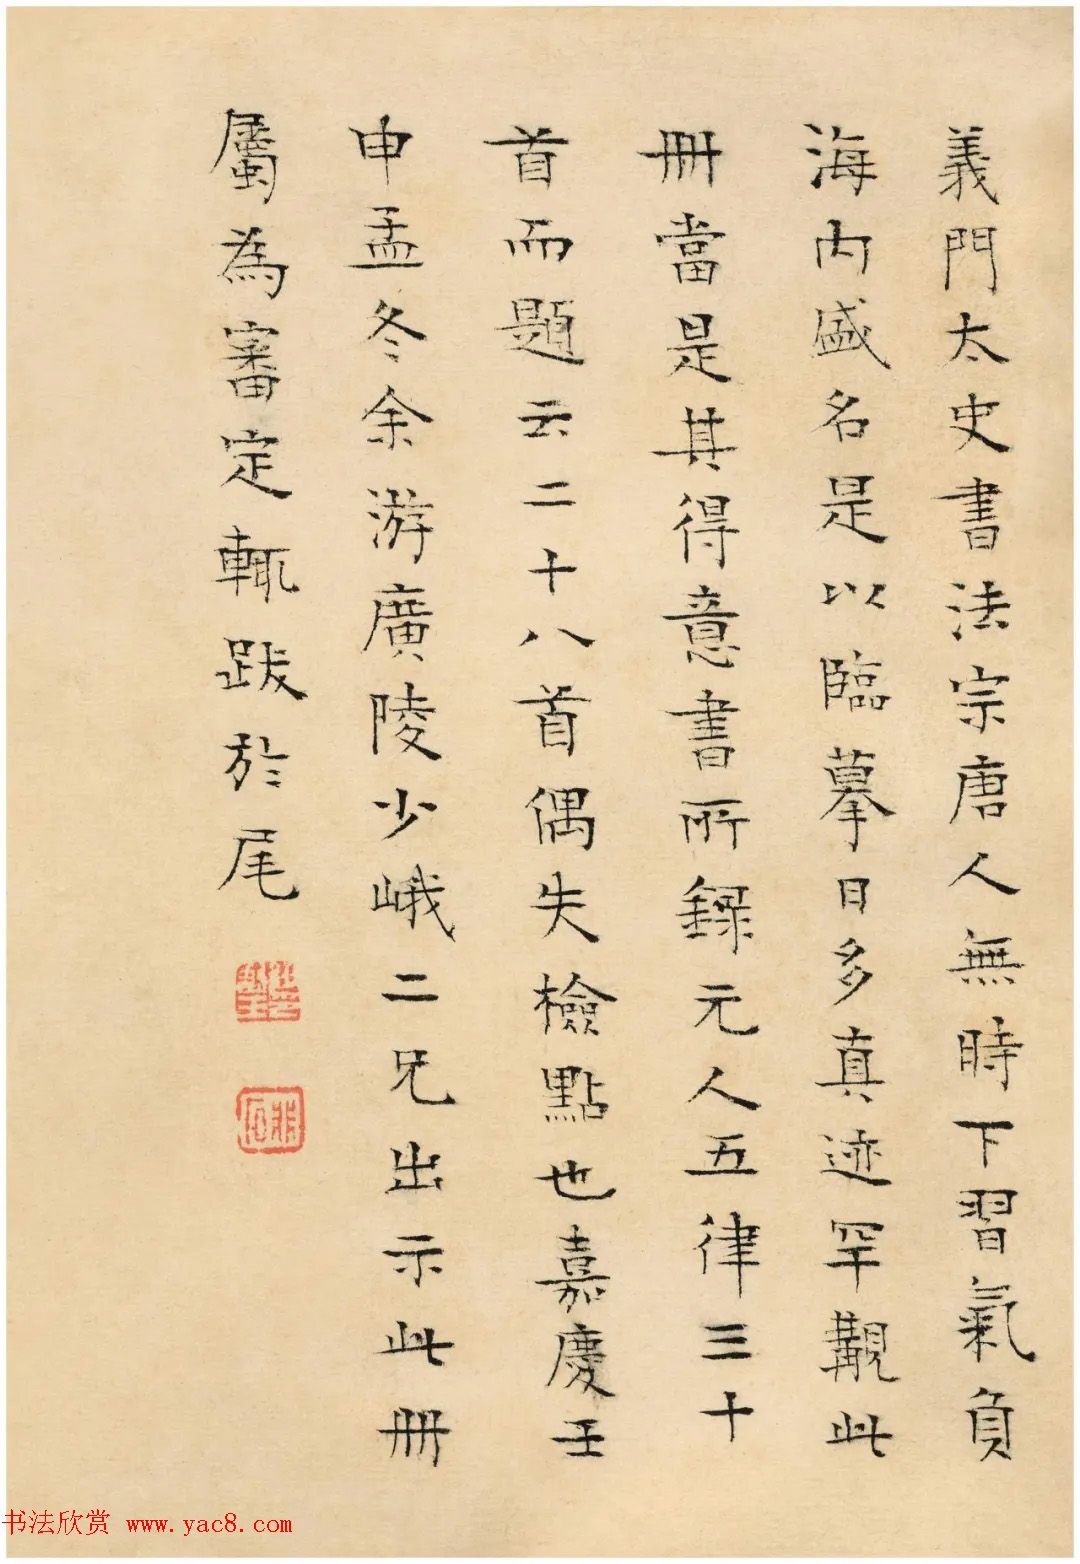 義門太史書法宗唐人無時下習氣負
海内盛名是以臨摹日多真迹罕觏此
冊當是其得意書所録元人五律三十
首而題云二十八首偶失檢點也嘉慶壬
申孟冬余游廣陵少峨二兄出示此冊
屬為審定輒跋於尾
书法欣赏 www.yac8.com